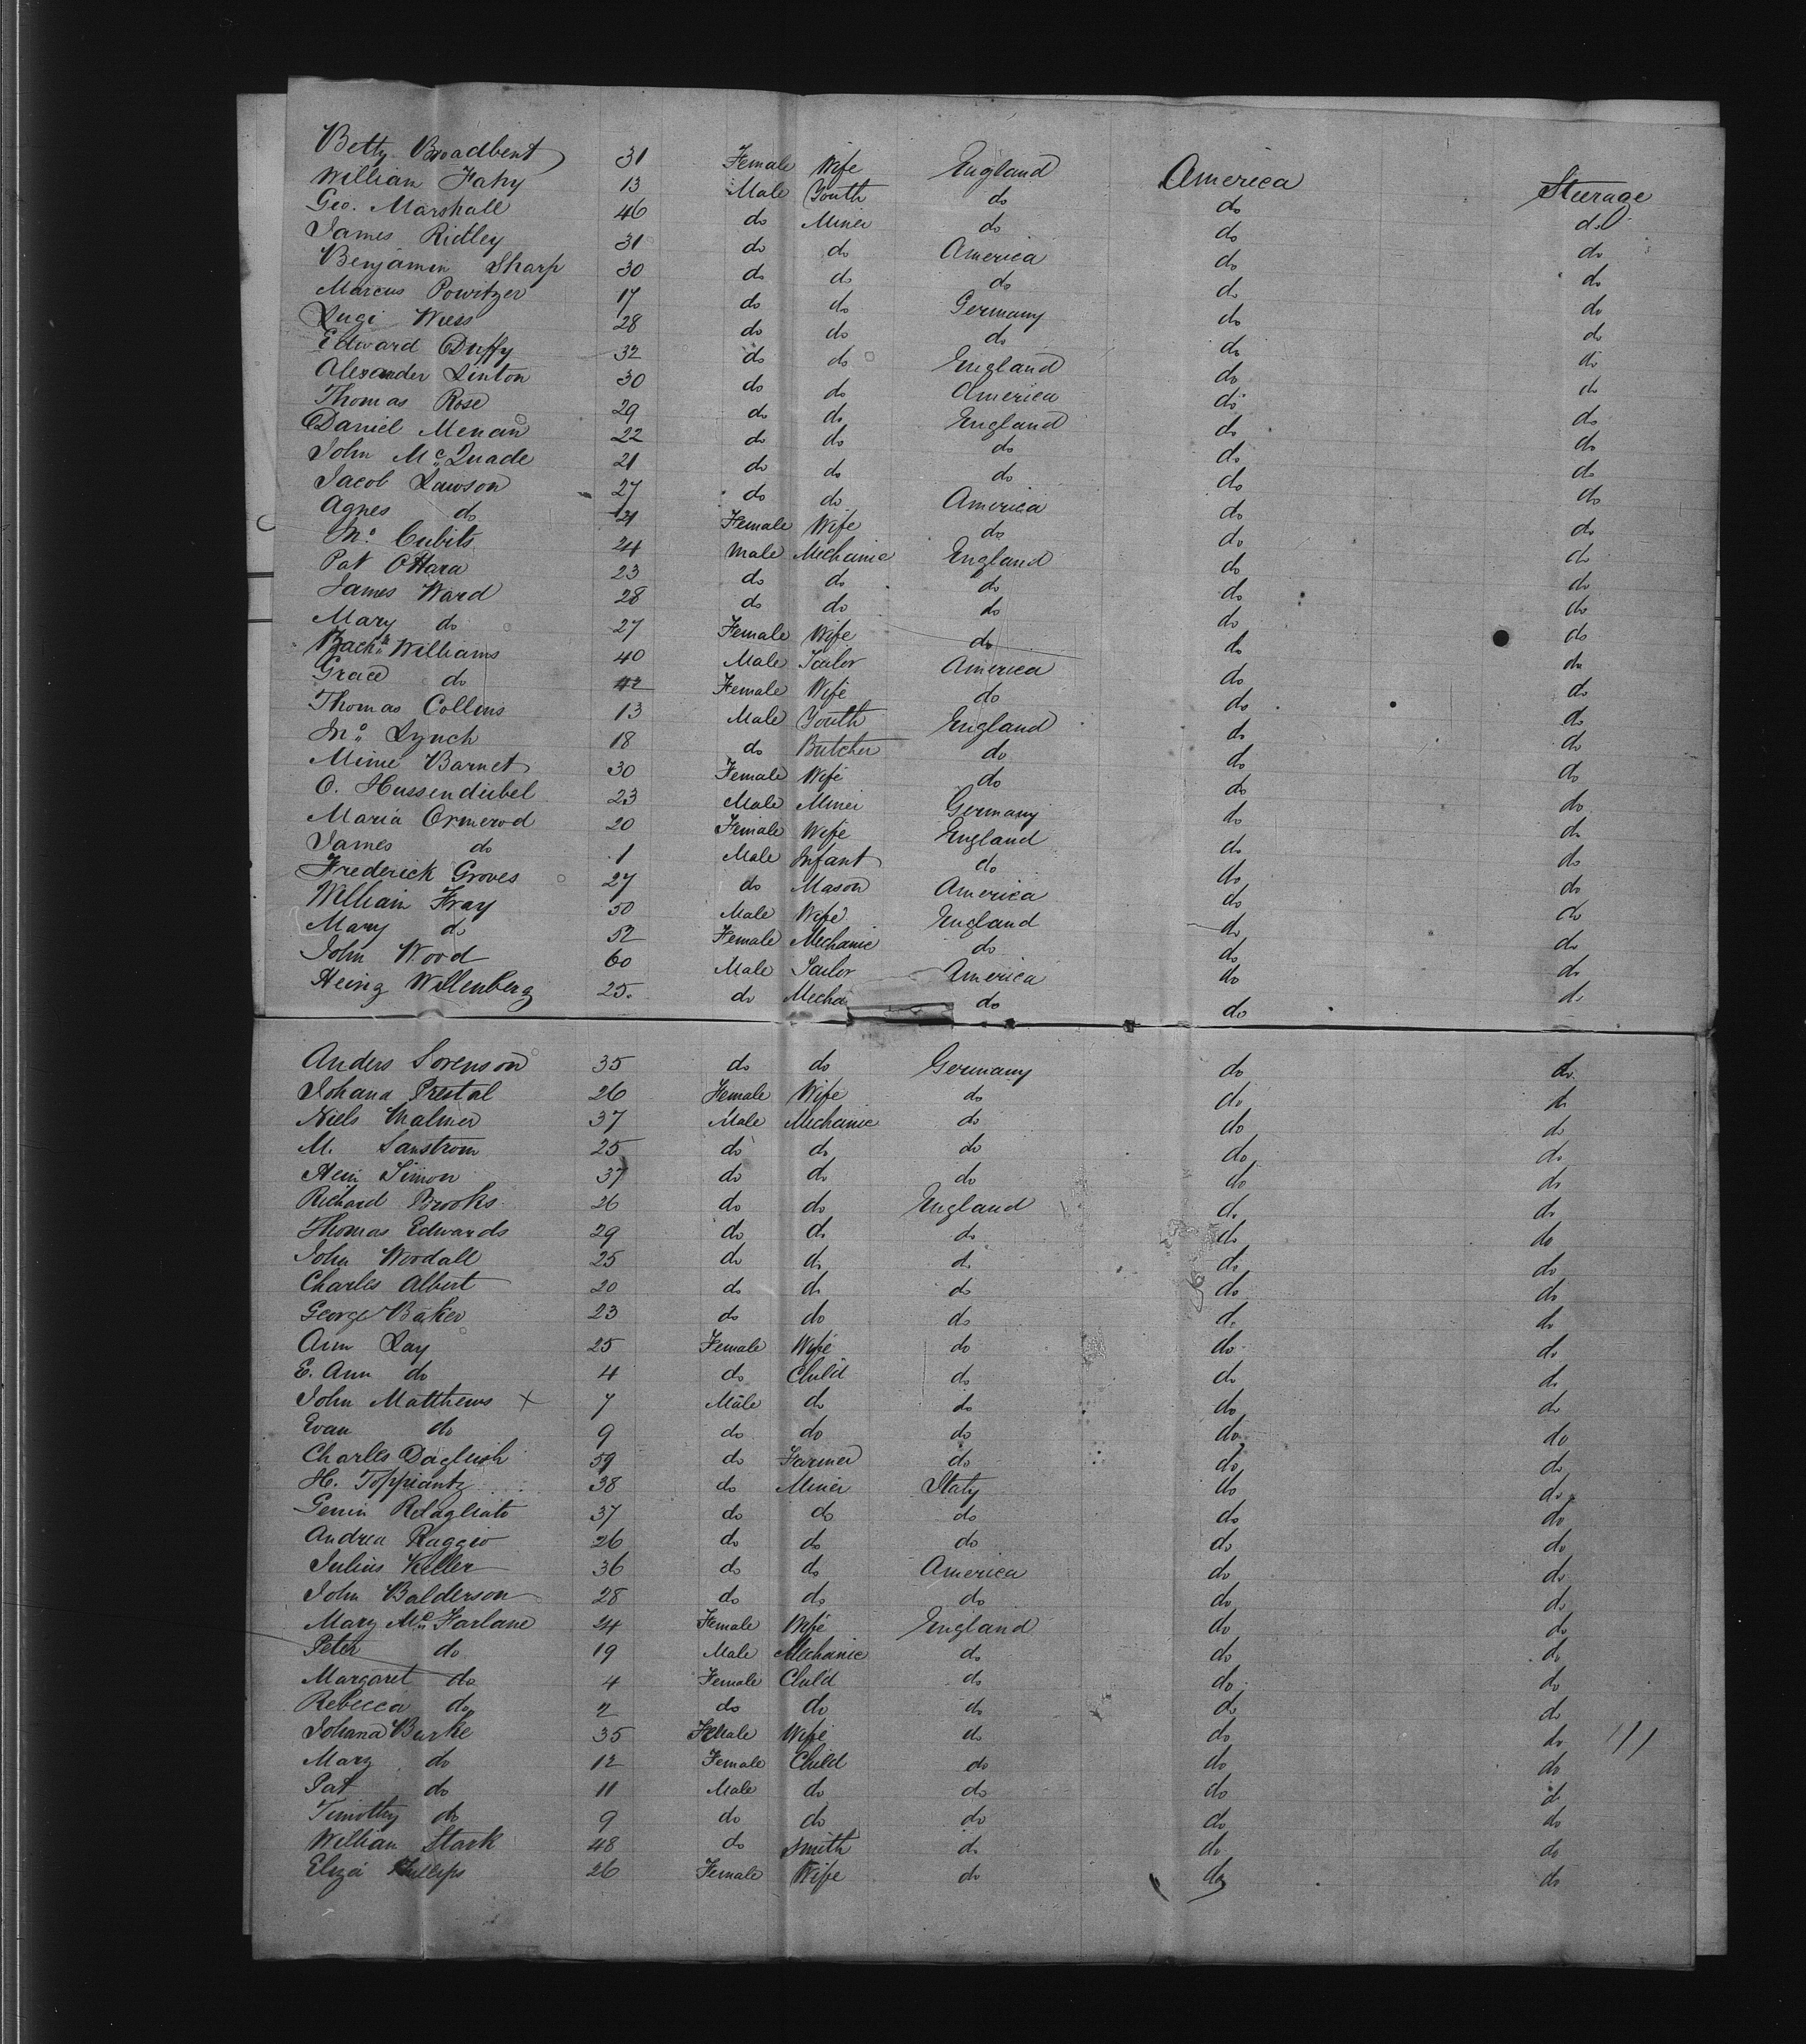 Betty Broadbent 31 Female Wife England America Steerage
William Fahy 13 Male Youth do do do
Geo. Marshall 46 do Miner do do do
James Ridley 31 do do America do do
Benjamin Sharp 30 do do do do do
Marcus Powitzer 17 do do Germany do do
Lugi Wess 28 do do do do do
Edward Duffy 32 do do England do do
Alexander Linton 30 do do America do do
Thomas Rose 29 do do England do do
Daniel Menan 22 do do do do do
John Mc Quade 21 do do do do do
Jacob Lawson 27 do do America do do
Agnes do 21 Female Wife do do do
Jno. Cubits 24 Male Mechanic England do do
Pat O'Hara 23 do do do do do
James Ward 28 do do do do do
Mary do 27 Female Wife do do do
Zach. Williams 40 Male Sailor America do do
Grace do 42 Female Wife do do do
Thomas Collins 13 Male Youth England do do
Jno. Lynch 18 do Butcher do do do
Mime Barnet 30 Female Wife do do do
O. Hussendubel 23 Male Miner Germany do do
Maria Ormerod 20 Female Wife England do do
James do 1 Male Infant do do do
Frederick Groves 27 do Mason America do do
William Fray 50 Male Wife England do do
Mary do 52 Female Mechanic do do do
John Wood 60 Male Sailor America do do
Heinz Willenberg 25. do Mecha do do do
Anders Sorenson 35 do do Germany do do
Johana Prestal 26 Female Wife do do do
Niels Malmer 37 Male Mechanic do do do
M. Sanstrom 25 do do do do do
Hein Simon 37 do do do do do
Richard Brooks 26 do do England do do
Thomas Edwards 29 do do do do do
John Woodall 25 do do do do do
Charles Albert 20 do do do do do
George Baker 23 do do do do do
Ann Lay 25 Female Wife do do do
E. Ann do 4 do Child do do do
John Matthews x 7 Male do do do do
Evan do 9 do do do do do
Charles Dagleish 59 do Farmer do do do
H. Toppiantz 38 do Miner Italy do do
Genin 37 do do do do do
Andrea Raggio 26 do do do do do
Julius Keller 36 do do America do do
John Balderson 28 do do do do do
Mary Mc Farlane 24 Female Wife England do do
Peter do 19 Male Mechanic do do do
Margaret do 4 Female Child do do do
Rebecca do 2 do do do do do
Johana Burke 35 Female Wife do do do
Mary do 12 Female Child do do do
Pat do 11 Male do do do do
Timothy do 9 do do do do do
William Stark 48 do Smith do do do
Eliza Phillips 26 Female Wife do do do